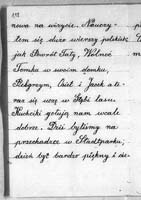 nowa na wizycie. Nauczy-
łam się dużo wierszy polskich
jak Powrót Taty, Wolność
Tomku w swoim domku,
Pielgrzym, Osieł i Jacek a te-
raz się uczę w głębi lasu.
Kucharki gotują nam wcale
dobrze. Dziś byliśmy na
przechadzce w Stadtparku,
dzień był bardzo piękny i cie-